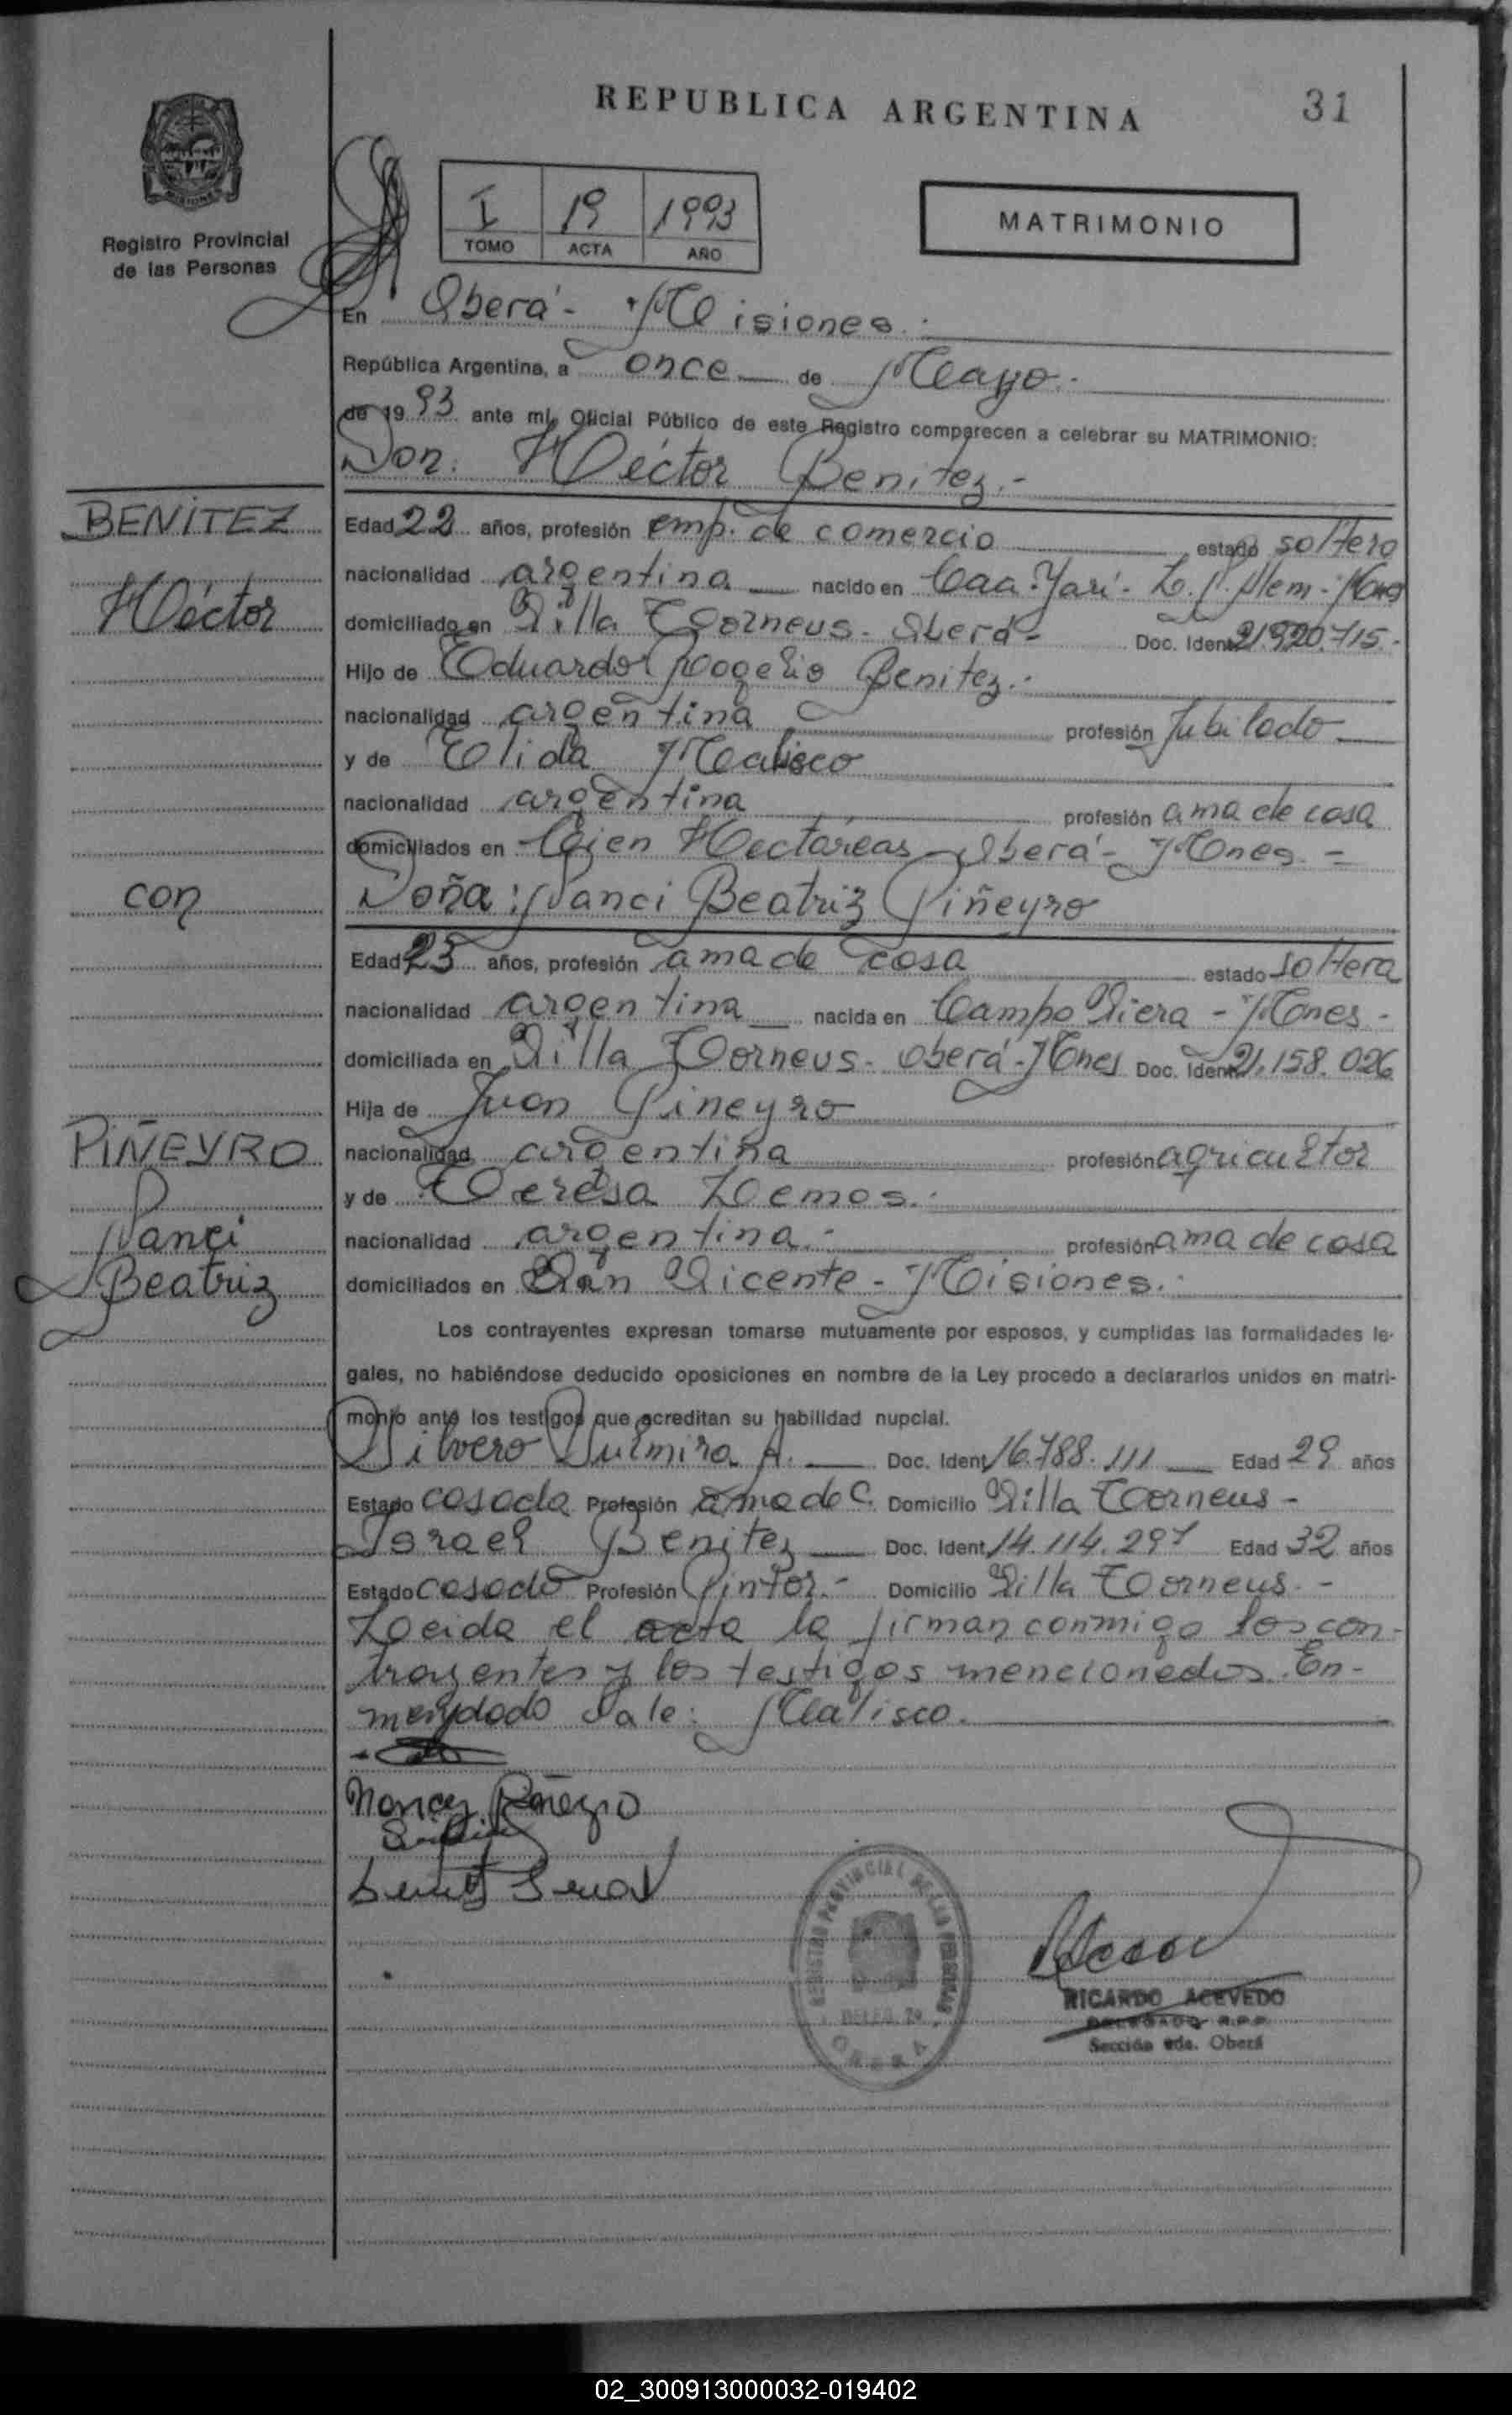 REPUBLICA ARGENTINA
31
Registro Provincial
de las Personas
I 19 1993
TOMO ACTA AÑO
MATRIMONIO
En Oberá - Misiones.-
República Argentina, a once de Mayo.-
de 1993 ante mí, Oficial Público de este Registro comparecen a celebrar su MATRIMONIO:
Don: Héctor Benitez.-
BENITEZ
Héctor
Edad 22 años, profesión emp. de comercio estado soltero
nacionalidad argentina nacido en Caa-Yarí- L. N. Alem - Mnes
domiciliado en Villa Torneus - Oberá - Doc. Ident. 21.920.715.-
Hijo de Eduardo Rogelio Benitez.-
nacionalidad argentina profesión Jubilado
y de Elida Malisco
nacionalidad argentina profesión ama de casa
domiciliados en Cien Hectáreas - Oberá - Mnes. -
con
Doña: Nanci Beatriz Piñeyro
Edad 23 años, profesión ama de casa estado soltera
nacionalidad argentina nacida en Campo Viera - Mnes -
domiciliada en Villa Torneus - Oberá - Mnes Doc. Ident. 21.158.026
Hija de Juan Piñeyro
PIÑEYRO
Nanci
Beatriz
nacionalidad argentina profesión agricultor
y de Teresa Lemos.-
nacionalidad argentina.- profesión ama de casa
domiciliados en San Vicente - Misiones.-
Los contrayentes expresan tomarse mutuamente por esposos, y cumplidas las formalidades le-
gales, no habiéndose deducido oposiciones en nombre de la Ley procedo a declararlos unidos en matri-
monio ante los testigos que acreditan su habilidad nupcial.
Silvero Dulmira A. Doc. Ident. 16.788.111 Edad 29 años
Estado casada Profesión ama de C. Domicilio Villa Torneus -
Israel Benitez Doc. Ident. 14.114.297 Edad 32 años
Estado casado Profesión Pintor.- Domicilio Villa Torneus. -
Leida el acta la firman conmigo los con-
trayentes y los testigos mencionados. En-
mendado Vale: Malisco.
Nancy Piñeyro
REGISTRO PROVINCIAL DE LAS PERSONAS
DELEG. 2a
OBERA
RICARDO ACEVEDO
DELEGADO R.P.P.
Sección 2da. Oberá
02_300913000032-019402